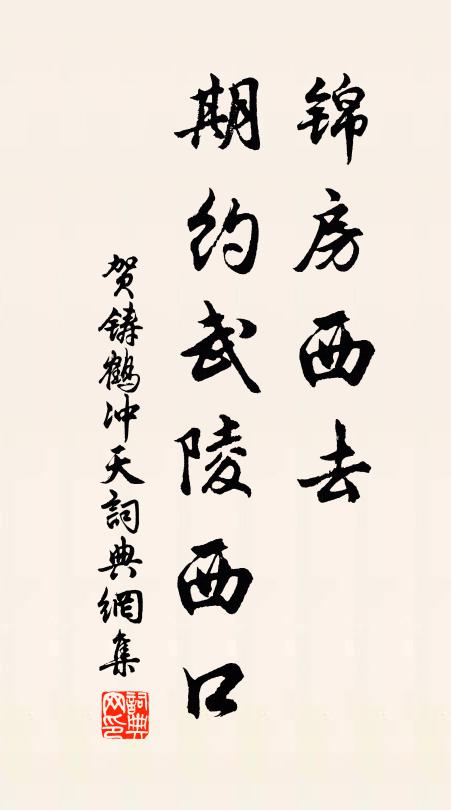 锦房西去
期约武陵西口
贺铸鹤冲天詞典網集
詞典网印